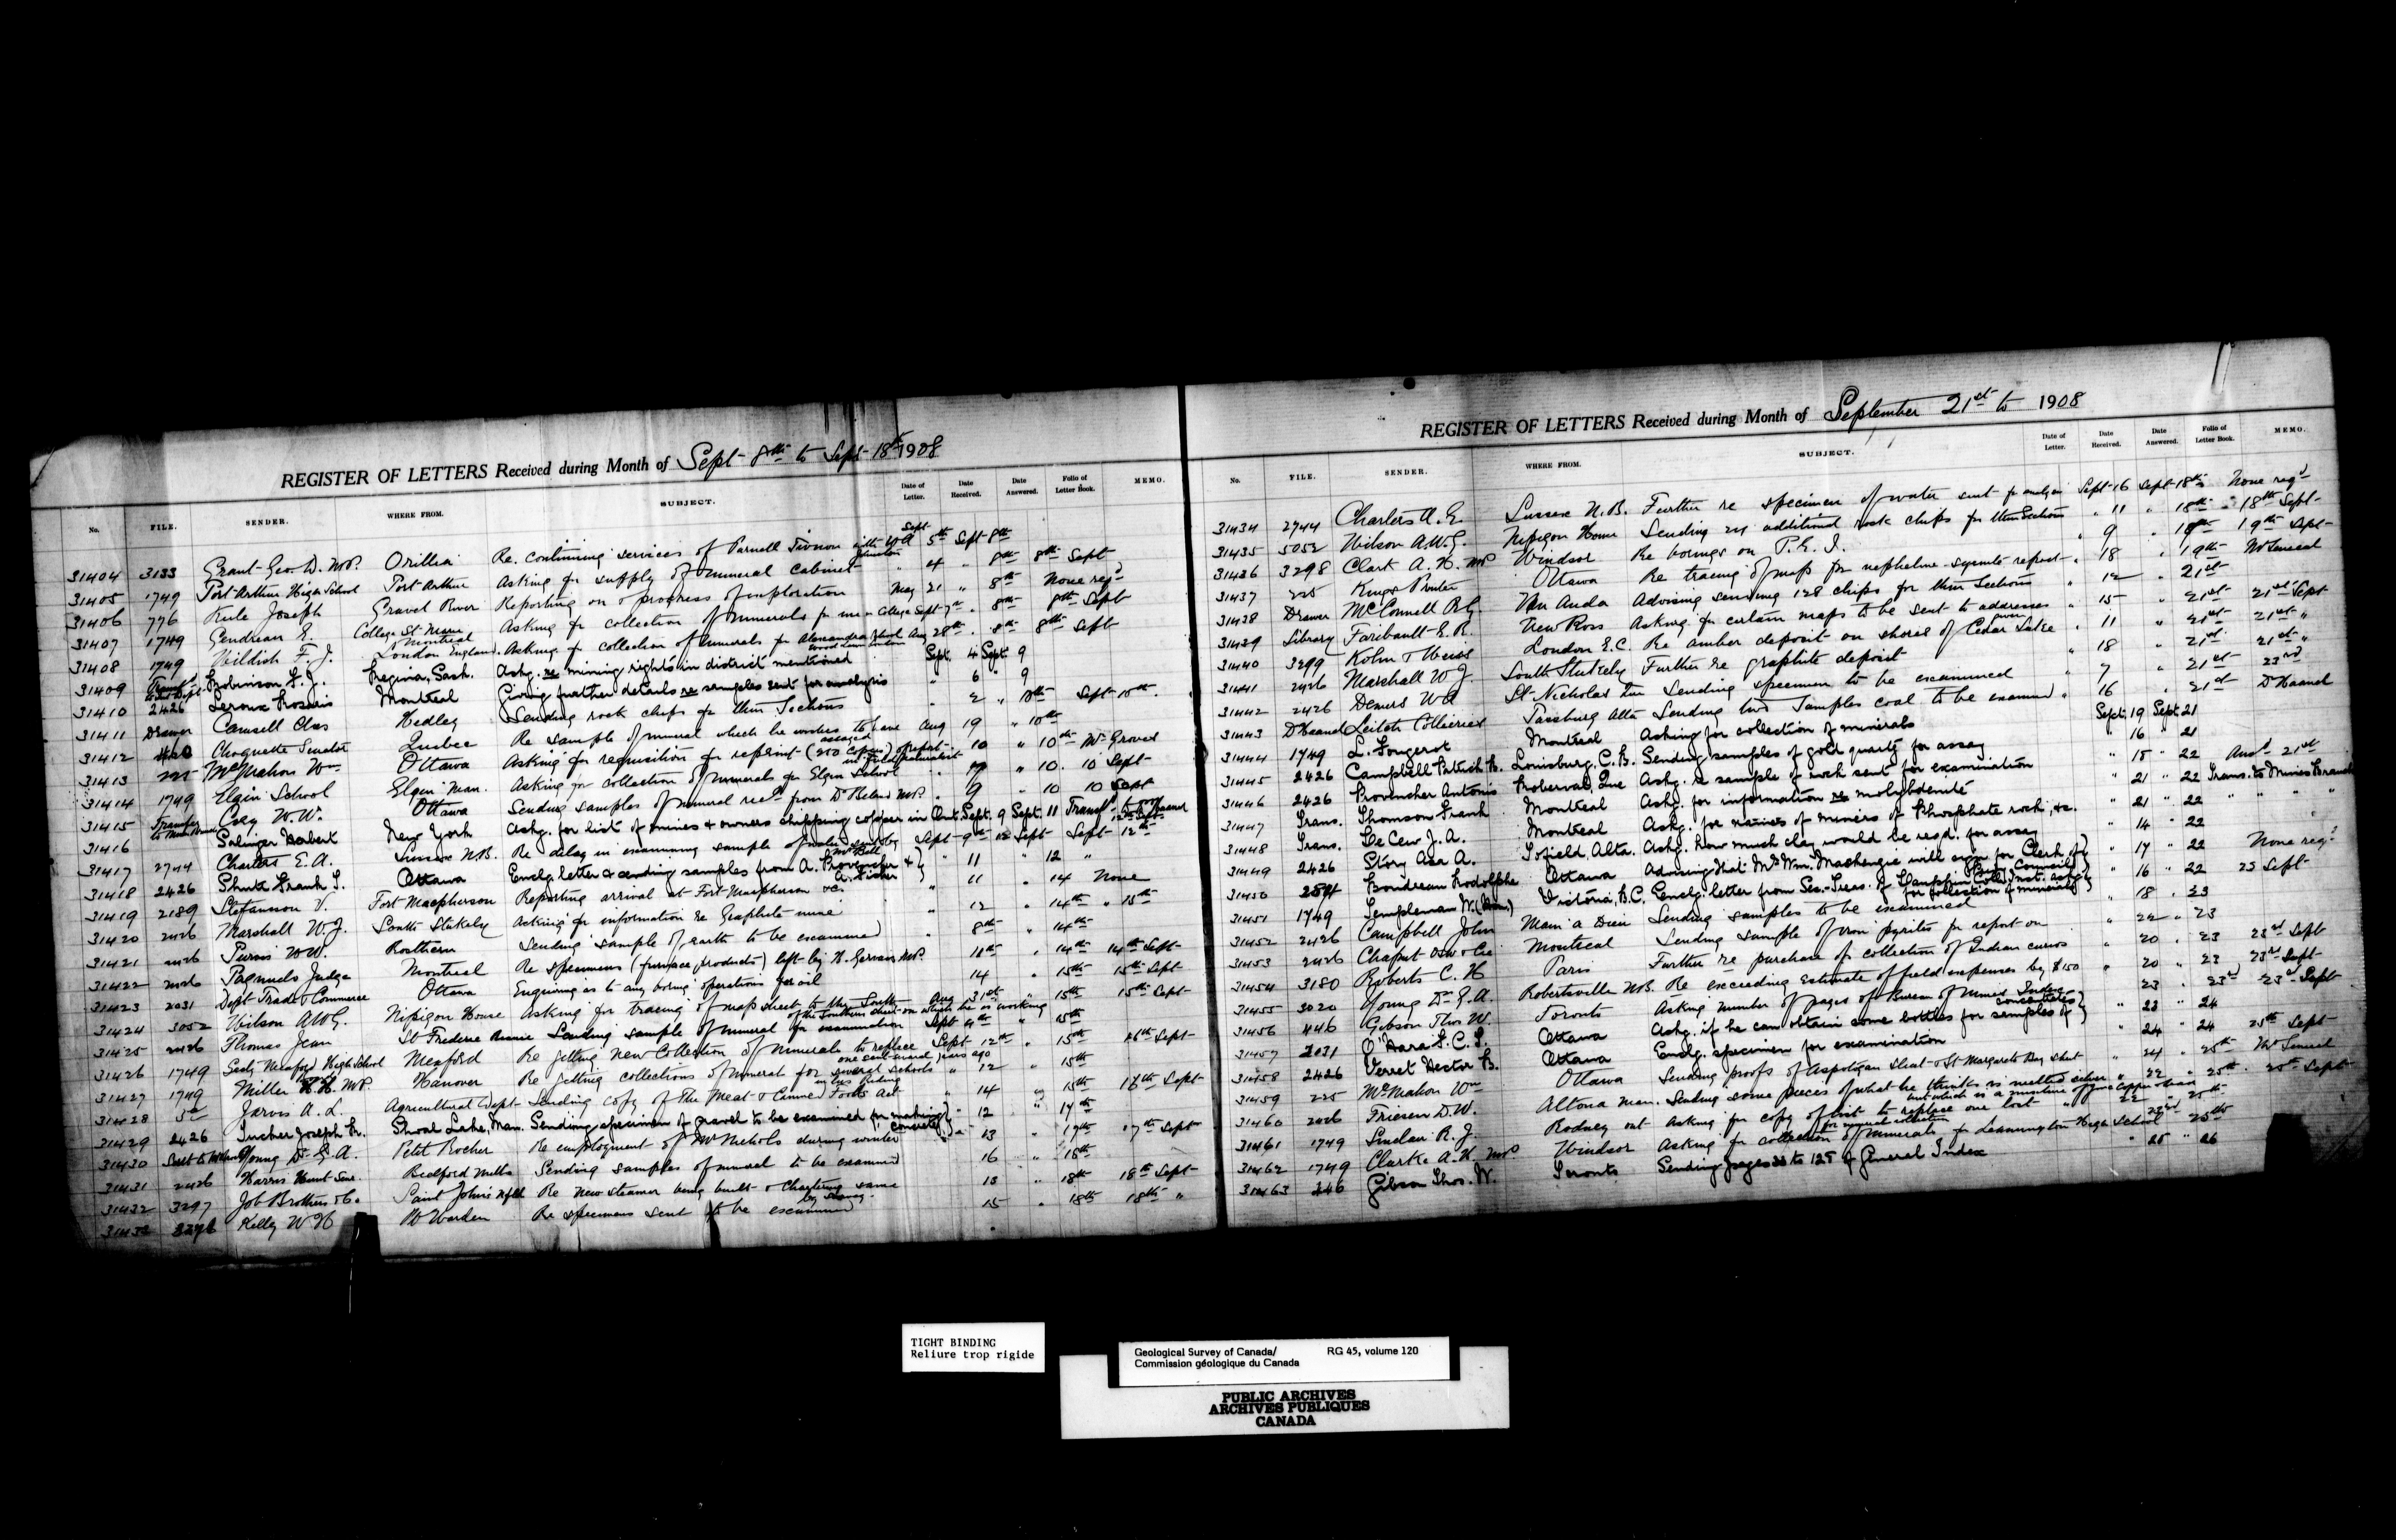 REGISTER OF LETTERS Received during Month of Sept 8th to Sept 18th 1908
No. FILE. SENDER. WHERE FROM. SUBJECT. Date of Letter. Date Received. Date Answered. Folio of Letter Book. MEMO.
31404 3133 Grant Geo. D. M.P. Orillia Re. continuing services of Parnell with W A Sept 5th Sept 8th
31405 1749 Port Arthur High School Port Arthur Asking for supply of mineral cabinet " 4 " 8th 8th Sept
31406 776 Keele Joseph Gravel River Reporting on progress of exploration May 21 " 8th None req'd
31407 1749 Gendreau E. College St Marie Montreal Asking for collection of minerals for use in College Sept 7th " 8th 8th Sept
31408 1749 F. J. London England. Asking for collection of minerals for Alexandra School Aug 28th " 8th 8th Sept
31409 Robinson Regina, Sask. Askg. re mining rights in district mentioned Sept. 4 Sept. 9
31410 2426 Leroux Montreal Giving further details re samples sent for analysis " 6 " 9
31411 Drawer Camsell Chas Hedley Sending rock chips for thin Sections " 2 " 10th Sept 10th.
31412 Choquette Senator Quebec Re sample of mineral which he wishes to have assayed Aug 19 " 10th
31413 McMahon Wm Ottawa Asking for requisition for reprint (250 Copies) of report 10 " 10th Mr Groves
31414 1749 Elgin School Elgin Man. Asking for collection of minerals for Elgin School " 10. 10 Sept
31415 Cory W. W. Ottawa Sending samples of mineral recd from Dr M.P. " 9 " 10 10 Sept
31416 Salinger Herbert New York Askg. for list of mines & owners shipping copper in Ont. Sept. 9 Sept. 11
31417 2744 Charters E. A. Sussex N.B. Re delay in examining sample of water Sept 9th " 12 Sept Sept 12th
31418 2426 Shutt Frank T. Ottawa Enclg. letter & sending samples from A. Provencher & A. Fisher " 11 " 12 "
31419 2189 Stefansson V. Fort Macpherson Reporting arrival at Fort Macpherson &c. " 11 " 14 None
31420 2426 Marshall W. J. South Stukely Asking for information re Graphite mine " 12 " 14th " 15th
31421 2426 Purvis W W. Rosthern Sending sample of earth to be examined " 8th " 14th
31422 2426 Pagnuelo Judge Montreal Re specimens (furnace products) left by H. Gervais M.P. " 14th 14th Sept
31423 2031 Dept Trade & Commerce Ottawa Enquiring as to any boring operations for oil " 14 " 15th 15th Sept
31424 3052 Wilson A W G. Nipigon House Asking for tracing of map sheet to the South of the Southern sheet on which he is working Aug 31st " 15th 15th Sept
31425 2426 Thomas Jean St Frederic Sending sample of mineral for examination Sept " 15th
31426 1749 Secty Meaford High School Meaford Re getting new Collection of minerals to replace one sent several years ago Sept 12th " 15th 16th Sept
31427 1749 Miller H. H. M.P. Hanover Re getting collections of mineral for several schools in his Riding " 12 " 15th
31428 Jarvis A. L. Agricultural Dept Sending copy of The Meat & Canned Foods Act " 14 " 15th 16th Sept
31429 2426 Tucker Joseph Shoal Lake, Man. Sending specimen of gravel to be examined for making concrete " 12 " 17th
31430 Young Dr G. A. Petit Rocher Re employment of Mr Nichols during winter " 13 " 17th 17th Sept
31431 2426 Harris Bedford Mills Sending samples of mineral to be examined 16 " 18th
31432 3297 Job Brothers & Co Saint John's Nfld Re new steamer being built & chartering same 18th 18th Sept
31433 Kelly W H Warden Re specimens sent to be examined 15 " 18th 18th "
REGISTER OF LETTERS Received during Month of September 21st to 1908
No. FILE. SENDER. WHERE FROM. SUBJECT. Date of Letter. Date Received. Date Answered. Folio of Letter Book. MEMO.
31434 2744 Charters A. E. Sussex N.B. Further re specimen of water sent for analysis Sept 16 Sept 18th None req'd
31435 5052 Wilson A.W.G. Nipigon House Sending 24 additional rock chips for thin Sections " 11 " 18th 18th Sept
31436 3298 Clark A. H. MP Windsor Re borings on P. E. I. " 9 " 18th 19th Sept
31437 225 Kings Printer Ottawa Re tracing of map for nepheline-syenite report " 18 " 19th
31438 Drawer McConnell R G Van Anda Advising sending 128 chips for thin Sections " 12 " 21st
31439 Library Faribault E. R. New Ross Asking for certain maps to be sent to addresses given " 15 " 21st 21st Sept
31440 3299 London E.C. Re amber deposit on shores of Cedar Lake " 11 " 21st 21st "
31441 2426 Marshall W J. South Stukely Further re graphite deposit " 18 " 21st 21st "
31442 2426 Demers W A St Nicholas Sending specimen to be examined " 7 " 21st 23rd
31443 Dr Haanel Leitch Collieries Passburg Alta Sending two Samples coal to be examined " 16 " 21st Dr Haanel
31444 1749 L. Fougerot Montreal Asking for collection of minerals Sept. 19 Sept 21
31445 2426 Campbell Patrick Louisburg, C. B. Sending samples of gold quartz for assay " 16 " 21
31446 2426 Provencher Antonio Roberval, Que Askg. re sample of rock sent for examination " 18 " 22 Ansd 21st
31447 Trans. Thomson Frank Montreal Askg. for information re molybdenite " 21 " 22 Trans. to Mines Branch
31448 Trans. De Cew J. A. Montreal Askg. for names of miners of Phosphate rock, &c. " 21 " 22 " " "
31449 2426 Story Asa A. Tofield, Alta. Askg. how much clay would be reqd. for assay " 14 " 22
31450 Boudreau Rodolphe Ottawa Advising that Mr Wm. Mackenzie will sign for Clerk of Privy Council " 17 " 22 None req'd
31451 1749 Templeman W. (Hon.) Victoria, B.C. Enclg. letter from Sec.-Treas. of Coll. Inst. askg for collection of minerals " 16 " 22 23 Sept
31452 2426 Campbell John Main a Dieu Sending samples to be examined " 18 " 23
31453 2426 Chaput & Cie Montreal Sending sample of iron pyrites for report on " 22 " 23
31454 3180 Roberts C. H Paris Further re purchase of collection of Indian curios " 20 " 23 23rd Sept
31455 3020 Young Dr G. A. Robertsville N.B. Re exceeding Estimate of field expenses by $150 " 20 " 23 23rd Sept
31456 446 Gibson Thos W. Toronto Asking number of pages of Bureau of Mines Index " 23 " 23rd 23rd Sept
31457 2031 O'Hara F. C. T. Ottawa Askg. if he can obtain some bottles for samples of concentrates " 23 " 24
31458 2426 Verret Hector B. Ottawa Enclg. specimen for examination " 24 " 24 25th Sept
31459 225 McMahon Wm Ottawa Sending proofs of Aspotogan Sheet & St Margarets Bay sheet " 24 " 25th
31460 2426 Friesen D. W. Altona Man. Sending some pieces of what he thinks is melted silver but which is a mixture of zinc copper & tin " 22 " 25th 25th Sept
31461 1749 Sinclair R. J. Rodney Ont Asking for copy of list to replace one lost for mineral collection " 22 " 25th
31462 1749 Clarke A. H. M.P. Windsor Asking for collection of minerals for Leamington High School 23rd " 25th
31463 446 Gibson Thos. W. Toronto Sending pages to 125 of General Index " 25 " 26
TIGHT BINDING
Reliure trop rigide
Geological Survey of Canada/ RG 45, volume 120
Commission géologique du Canada
PUBLIC ARCHIVES
ARCHIVES PUBLIQUES
CANADA